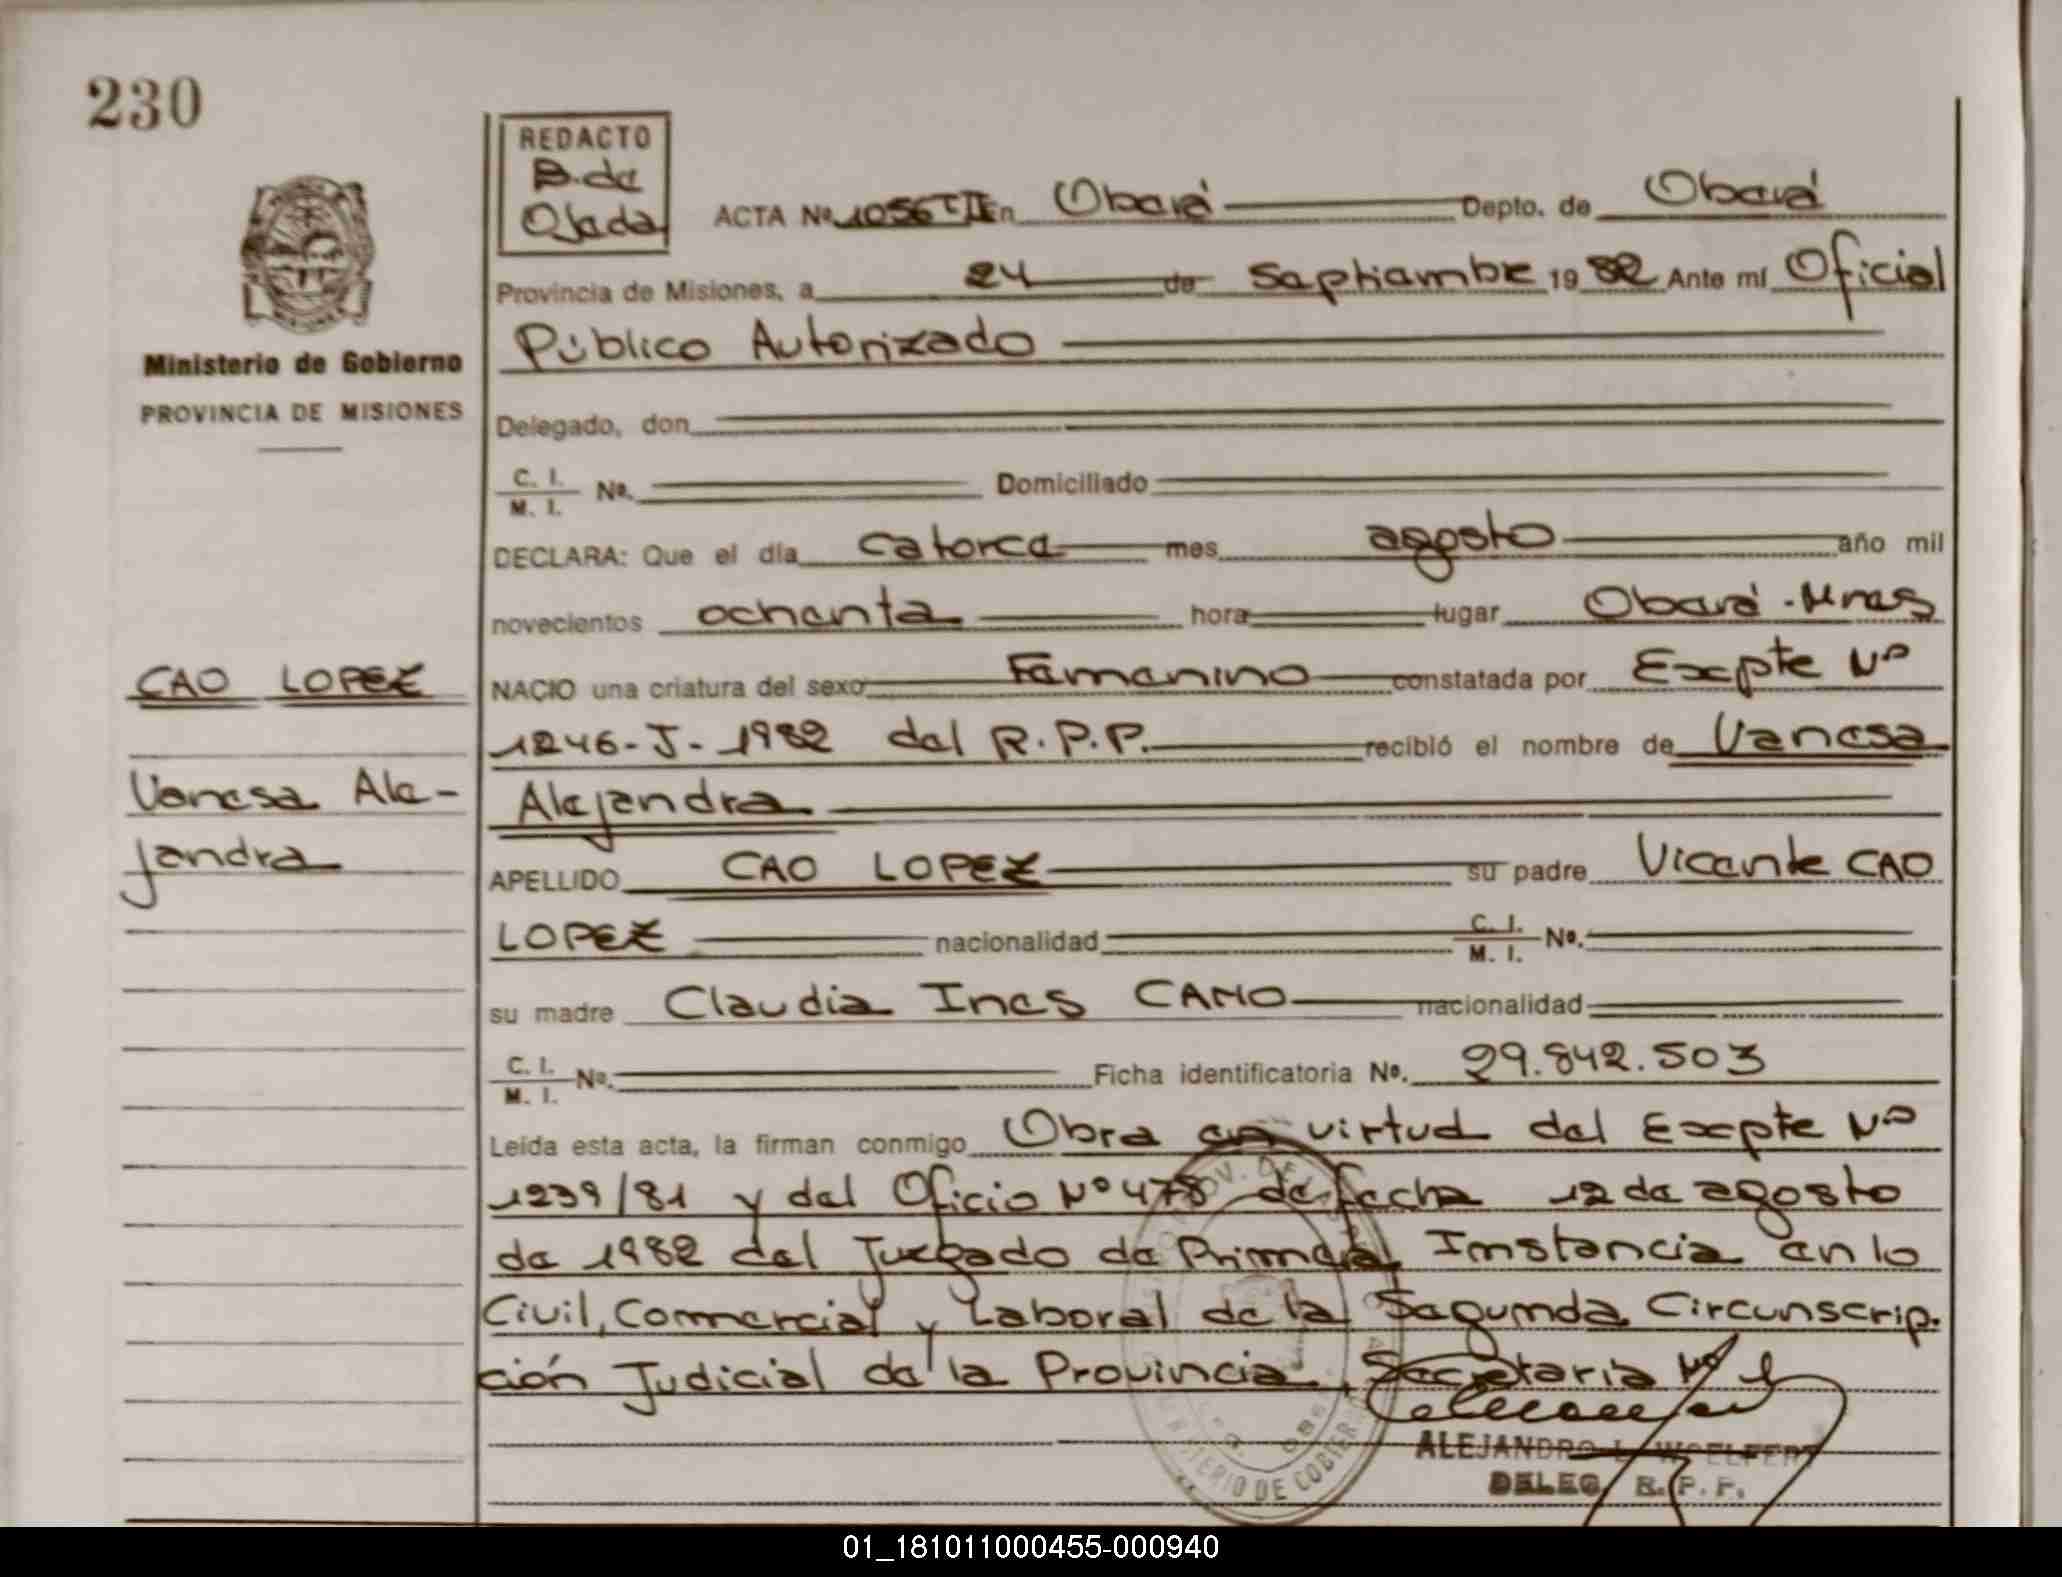 230
REDACTO
B. de
Ojeda
ACTA Nº 1056 T II En Oberá Depto. de Oberá
Provincia de Misiones, a 24 de Septiembre 1982 Ante mí Oficial
Público Autorizado
Ministerio de Gobierno
PROVINCIA DE MISIONES
Delegado, don
C. I.
M. I. Nº. Domiciliado
DECLARA: Que el día catorce mes agosto año mil
novecientos ochenta hora lugar Oberá - Mnes
CAO LOPEZ
NACIO una criatura del sexo Femenino constatada por Expte Nº
1246-J-1982 del R.P.P. recibió el nombre de Vanesa
Vanesa Ale-
Alejandra
jandra
APELLIDO CAO LOPEZ su padre Vicente CAO
LOPEZ nacionalidad C. I.
M. I. Nº.
su madre Claudia Ines CANO nacionalidad
C. I.
M. I. Nº. Ficha identificatoria Nº. 29.842.503
Leída esta acta, la firman conmigo Obra en virtud del Expte Nº
1239/81 y del Oficio Nº 478 de fecha 12 de agosto
de 1982 del Juzgado de Primera Instancia en lo
Civil, Comercial y Laboral de la Segunda Circunscrip.
ción Judicial de la Provincia, Secretaria Nº 1
ALEJANDRO L. WOELFERT
DELEG. R. P. P.
MINISTERIO DE GOBIERNO
01_181011000455-000940